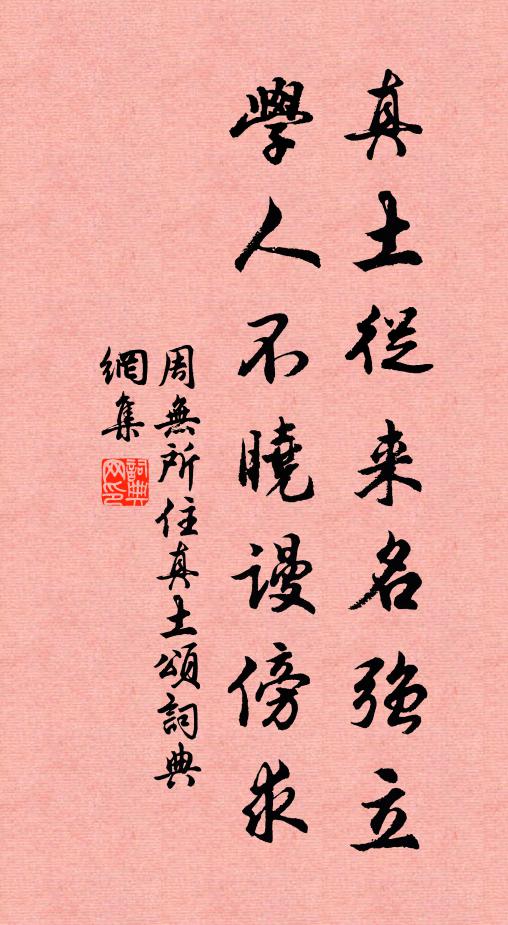 真土從来名強立
學人不曉謾傍求
周無所住真土頌詞典
網集
詞典網印